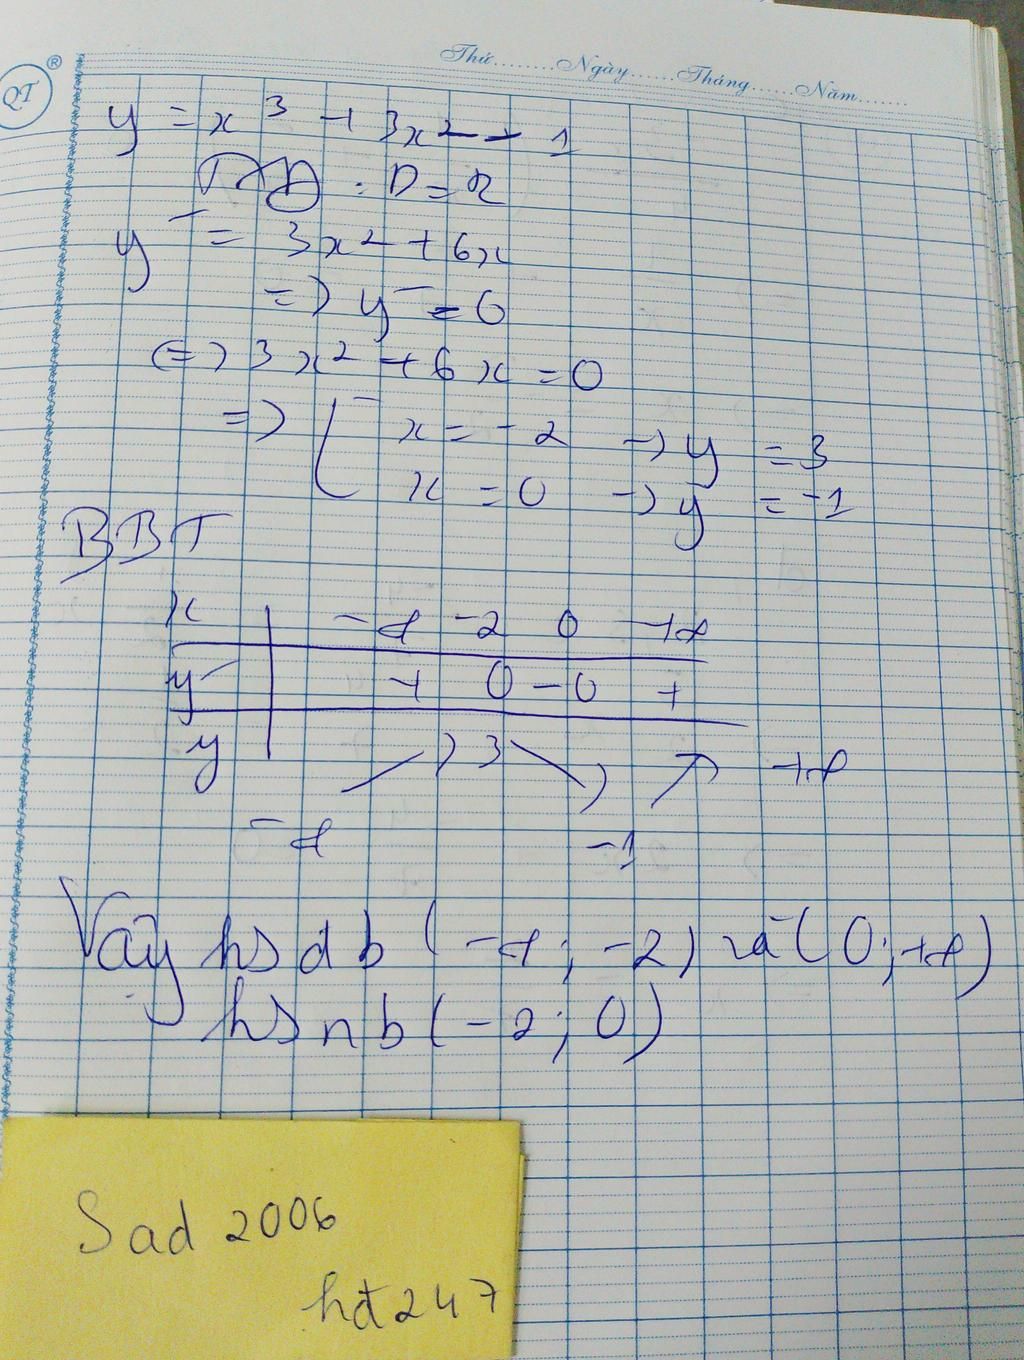 QT ®
Thứ........Ngày......Tháng......Năm.......
y = x³ + 3x² - 1
TXD : D = R
y' = 3x² + 6x
=> y' = 0
<=> 3x² + 6x = 0
=> [ x = -2 -> y = 3
x = 0 -> y = -1
BBT
x | -∞ -2 0 +∞
y' | + 0 - 0 +
y | ↗ 3 ↘ ↗ +∞
-∞ -1
Vậy hs đb (-∞; -2) và (0; +∞)
hs nb (-2; 0)
Sad 2006
hđ247